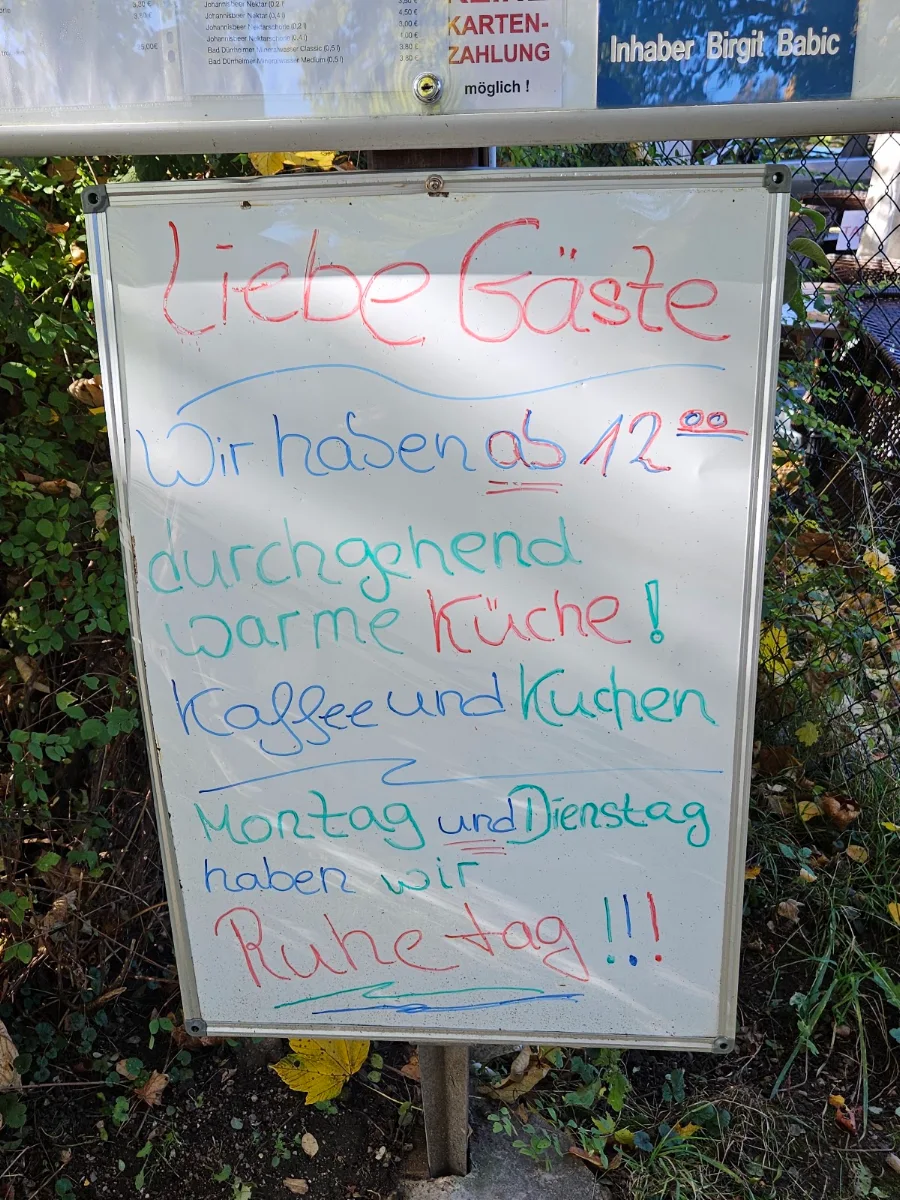 Johannisbeer Nektar (0,2 l)
Johannisbeer Nektar (0,4 l)
Johannisbeer Nektarschorle (0,2 l)
Johannisbeer Nektarschorle (0,4 l)
Bad Dürrheimer Mineralwasser Classic (0,5 l) 3.80 €
Bad Dürrheimer Mineralwasser Medium (0,5 l) 3.80 €
KARTEN-
ZAHLUNG
möglich !
Inhaber Birgit Babic
Liebe Gäste
Wir haben ab 12 00
durchgehend
warme Küche!
Kaffee und Kuchen
Montag und Dienstag
haben wir
Ruhetag !!!